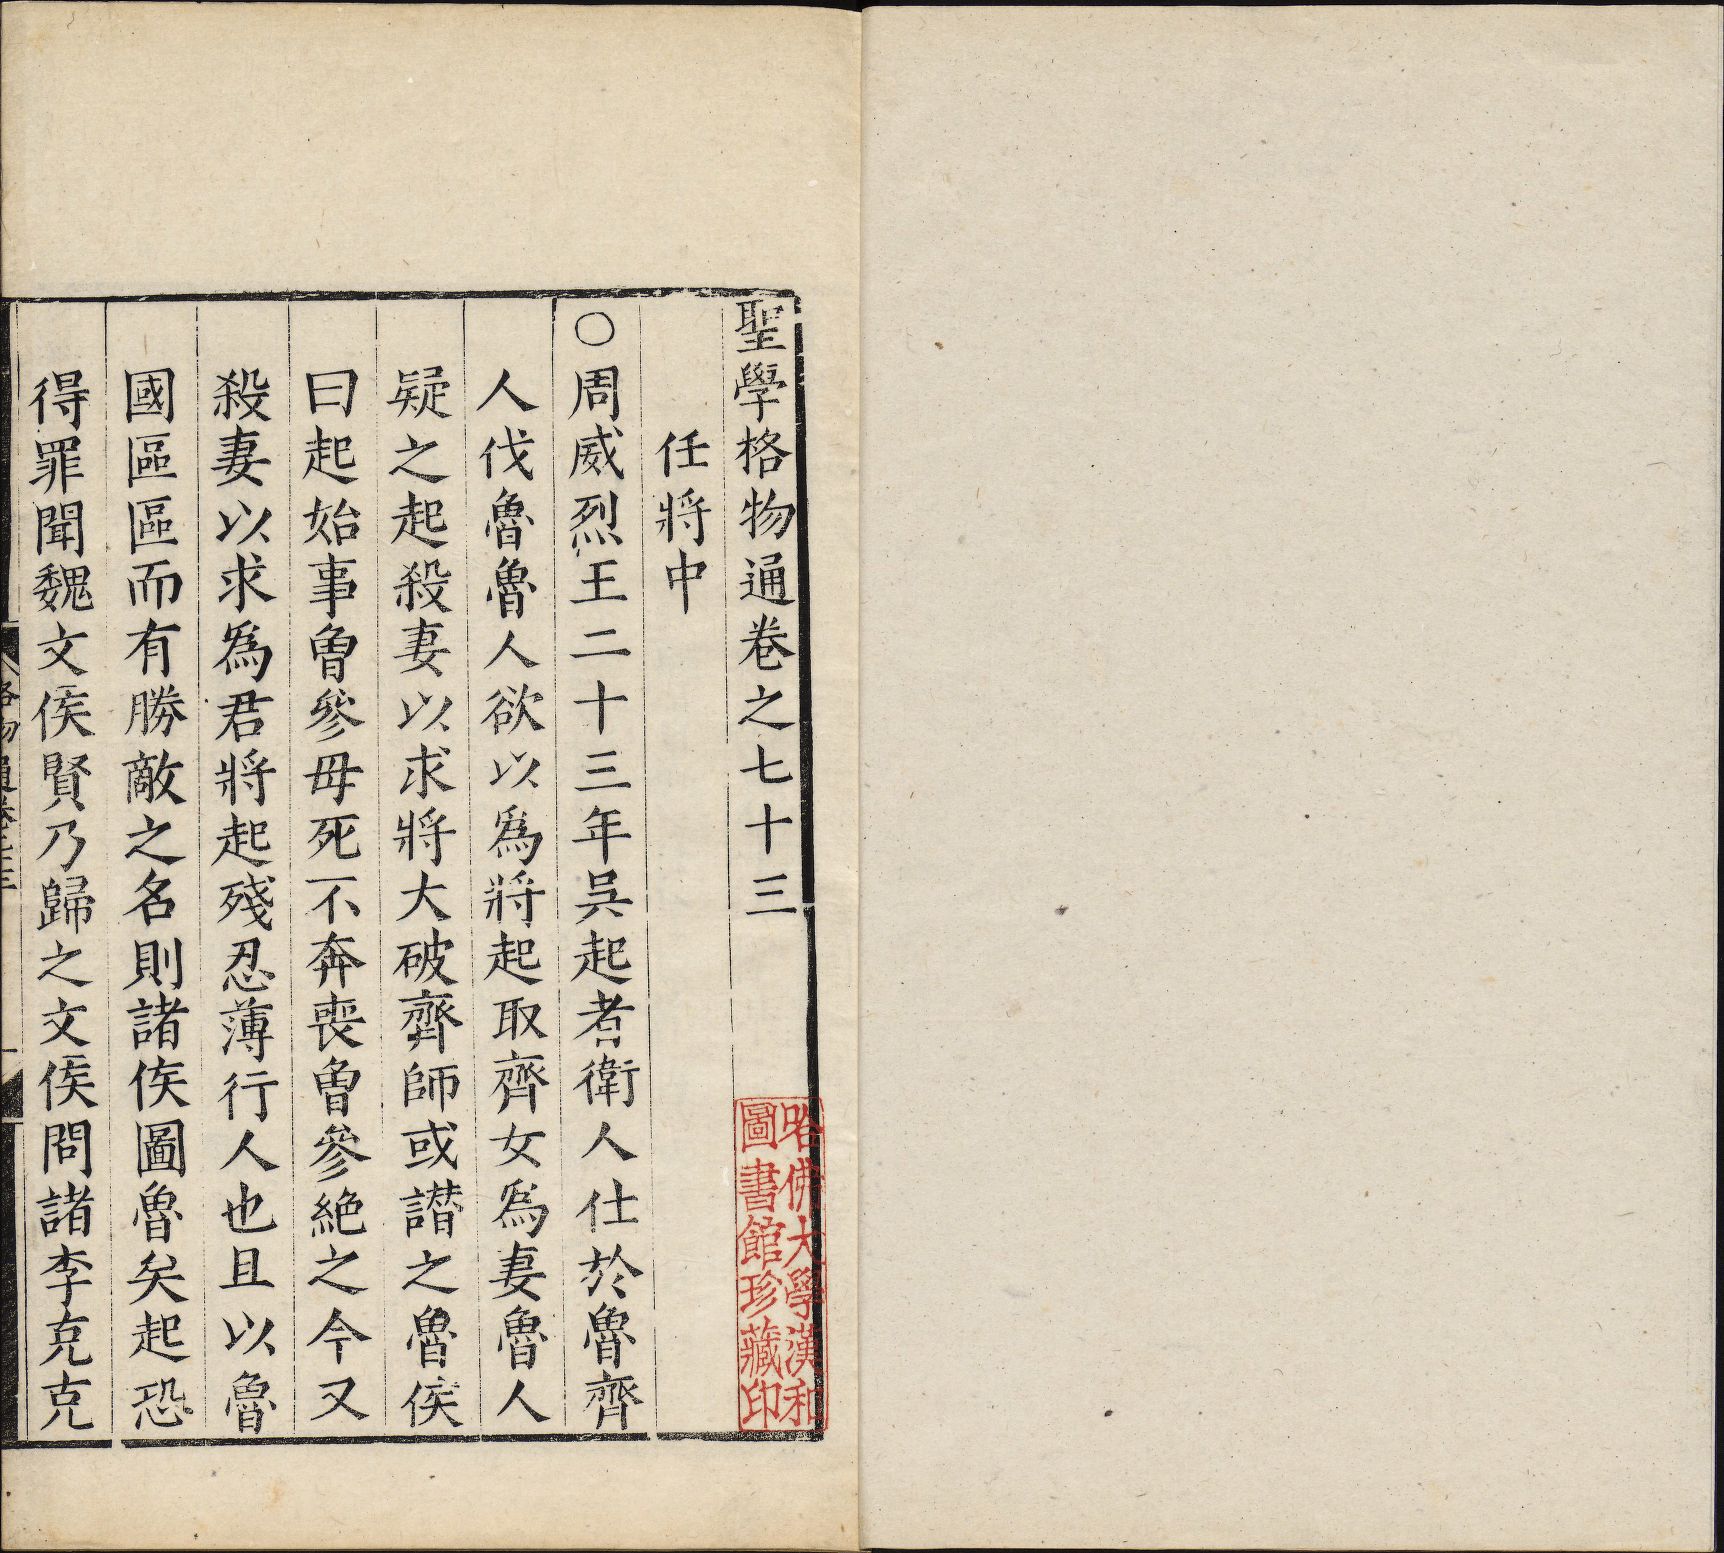 聖學格物通卷之七十三
任將中
○周威烈王二十三年吳起者衛人仕於魯齊
人伐魯魯人欲以為將起取齊女為妻魯人
疑之起殺妻以求將大破齊師或譖之魯侯
曰起始事曾參母死不奔喪曾參絕之今又
殺妻以求為君將起殘忍薄行人也且以魯
國區區而有勝敵之名則諸侯圖魯矣起恐
得罪聞魏文侯賢乃歸之文侯問諸李克克
格物通卷七十三
一
哈佛大學漢和
圖書館珍藏印